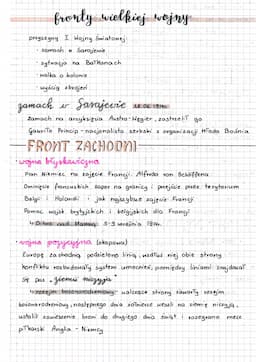 fronty wielkiej wojny
przyczyny I Wojny Światowej:
· zamach w Sarajewie
· sytuacja na Bałkanach
· walka o kolonie
· wyścig zbrojeń
zamach w Sarajewie 28.06.1914r.
Zamach na arcyksięcia Austro-Węgier, zastrzelił go
Gawriło Princip - nacjonalista serbski z organizacji Młoda Bośnia.
FRONT ZACHODNI
· wojna błyskawiczna
Plan Niemiec na zajęcie Francji: Alfreda von Schlieffena
Ominięcie francuskich zapór na granicy i przejście przez terytorium
Belgii i Holandii i jak najszybsze zajęcie Francji
Pomoc wojsk brytyjskich i belgijskich dla Francji
↳ Bitwa nad Marną 5-9 września 1914r.
· wojna pozycyjna (okopowa)
Europę zachodnią podzielono linią, wzdłuż niej obie strony
konfliktu rozbudowały system umocnień, pomiędzy liniami znajdował
się pas „ziemi niczyjej"
↳ rozejm bożonarodzeniowy walczące strony zawarły rozejm
bożonarodzeniowy, następnego dnia żołnierze weszli na ziemię niczyją,
ustalili zawieszenie broni do drugiego dnia świąt i rozegrano mecz
piłkarski Anglia - Niemcy